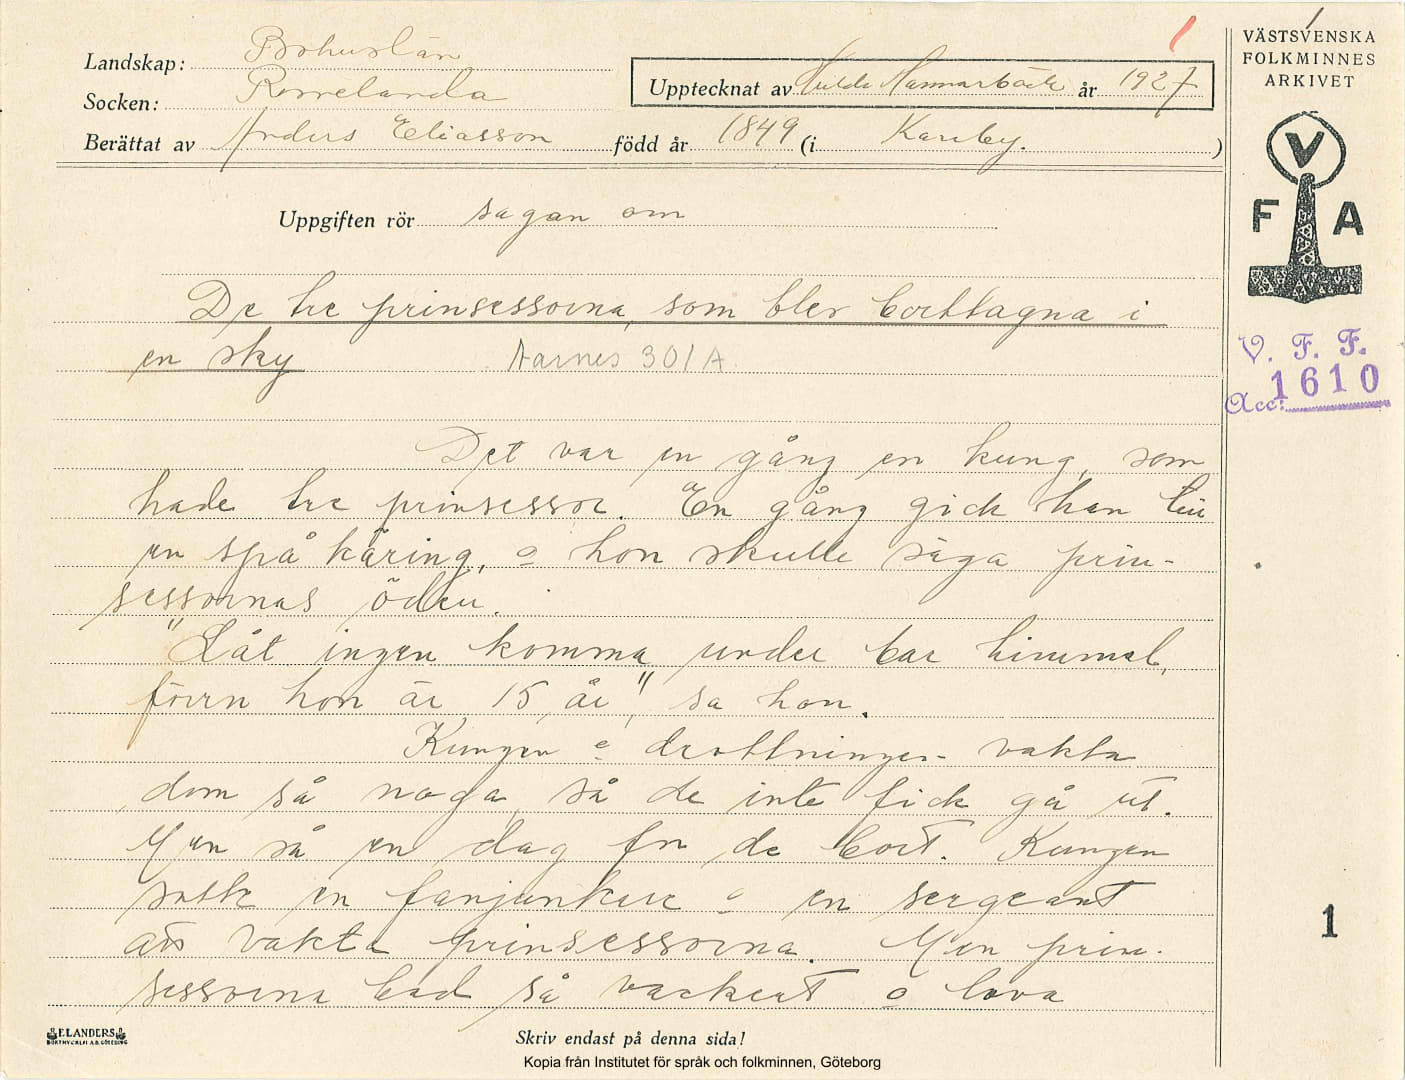 Landskap: Bohuslän
Socken: Romelanda
Upptecknat av Hilda Hammarbäck år 1927
Berättat av Anders Eliasson född år 1849 (i Kareby.)
Uppgiften rör sagan om
De tre prinsessorna, som blev borttagna i
en sky Aarnes 301 A
Det var en gång en kung, som
hade tre prinsessor. En gång gick han till
en spåkäring, o hon skulle säga prin-
sessornas öden.
"Låt ingen komma under bar himmel,
förrn hon är 15 år", sa hon.
Kungen o drottningen vakta
dom så noga, så de inte fick gå ut.
Men så en dag for de bort. Kungen
satte en fanjunkare o en sergeant
att vakta prinsessorna. Men prin-
sessorna bad så vackert o lova
VÄSTSVENSKA
FOLKMINNES
ARKIVET
V
F A
V. F. F.
Acc: 1610
1
F. LANDERS
Skriv endast på denna sida!
Kopia från Institutet för språk och folkminnen, Göteborg